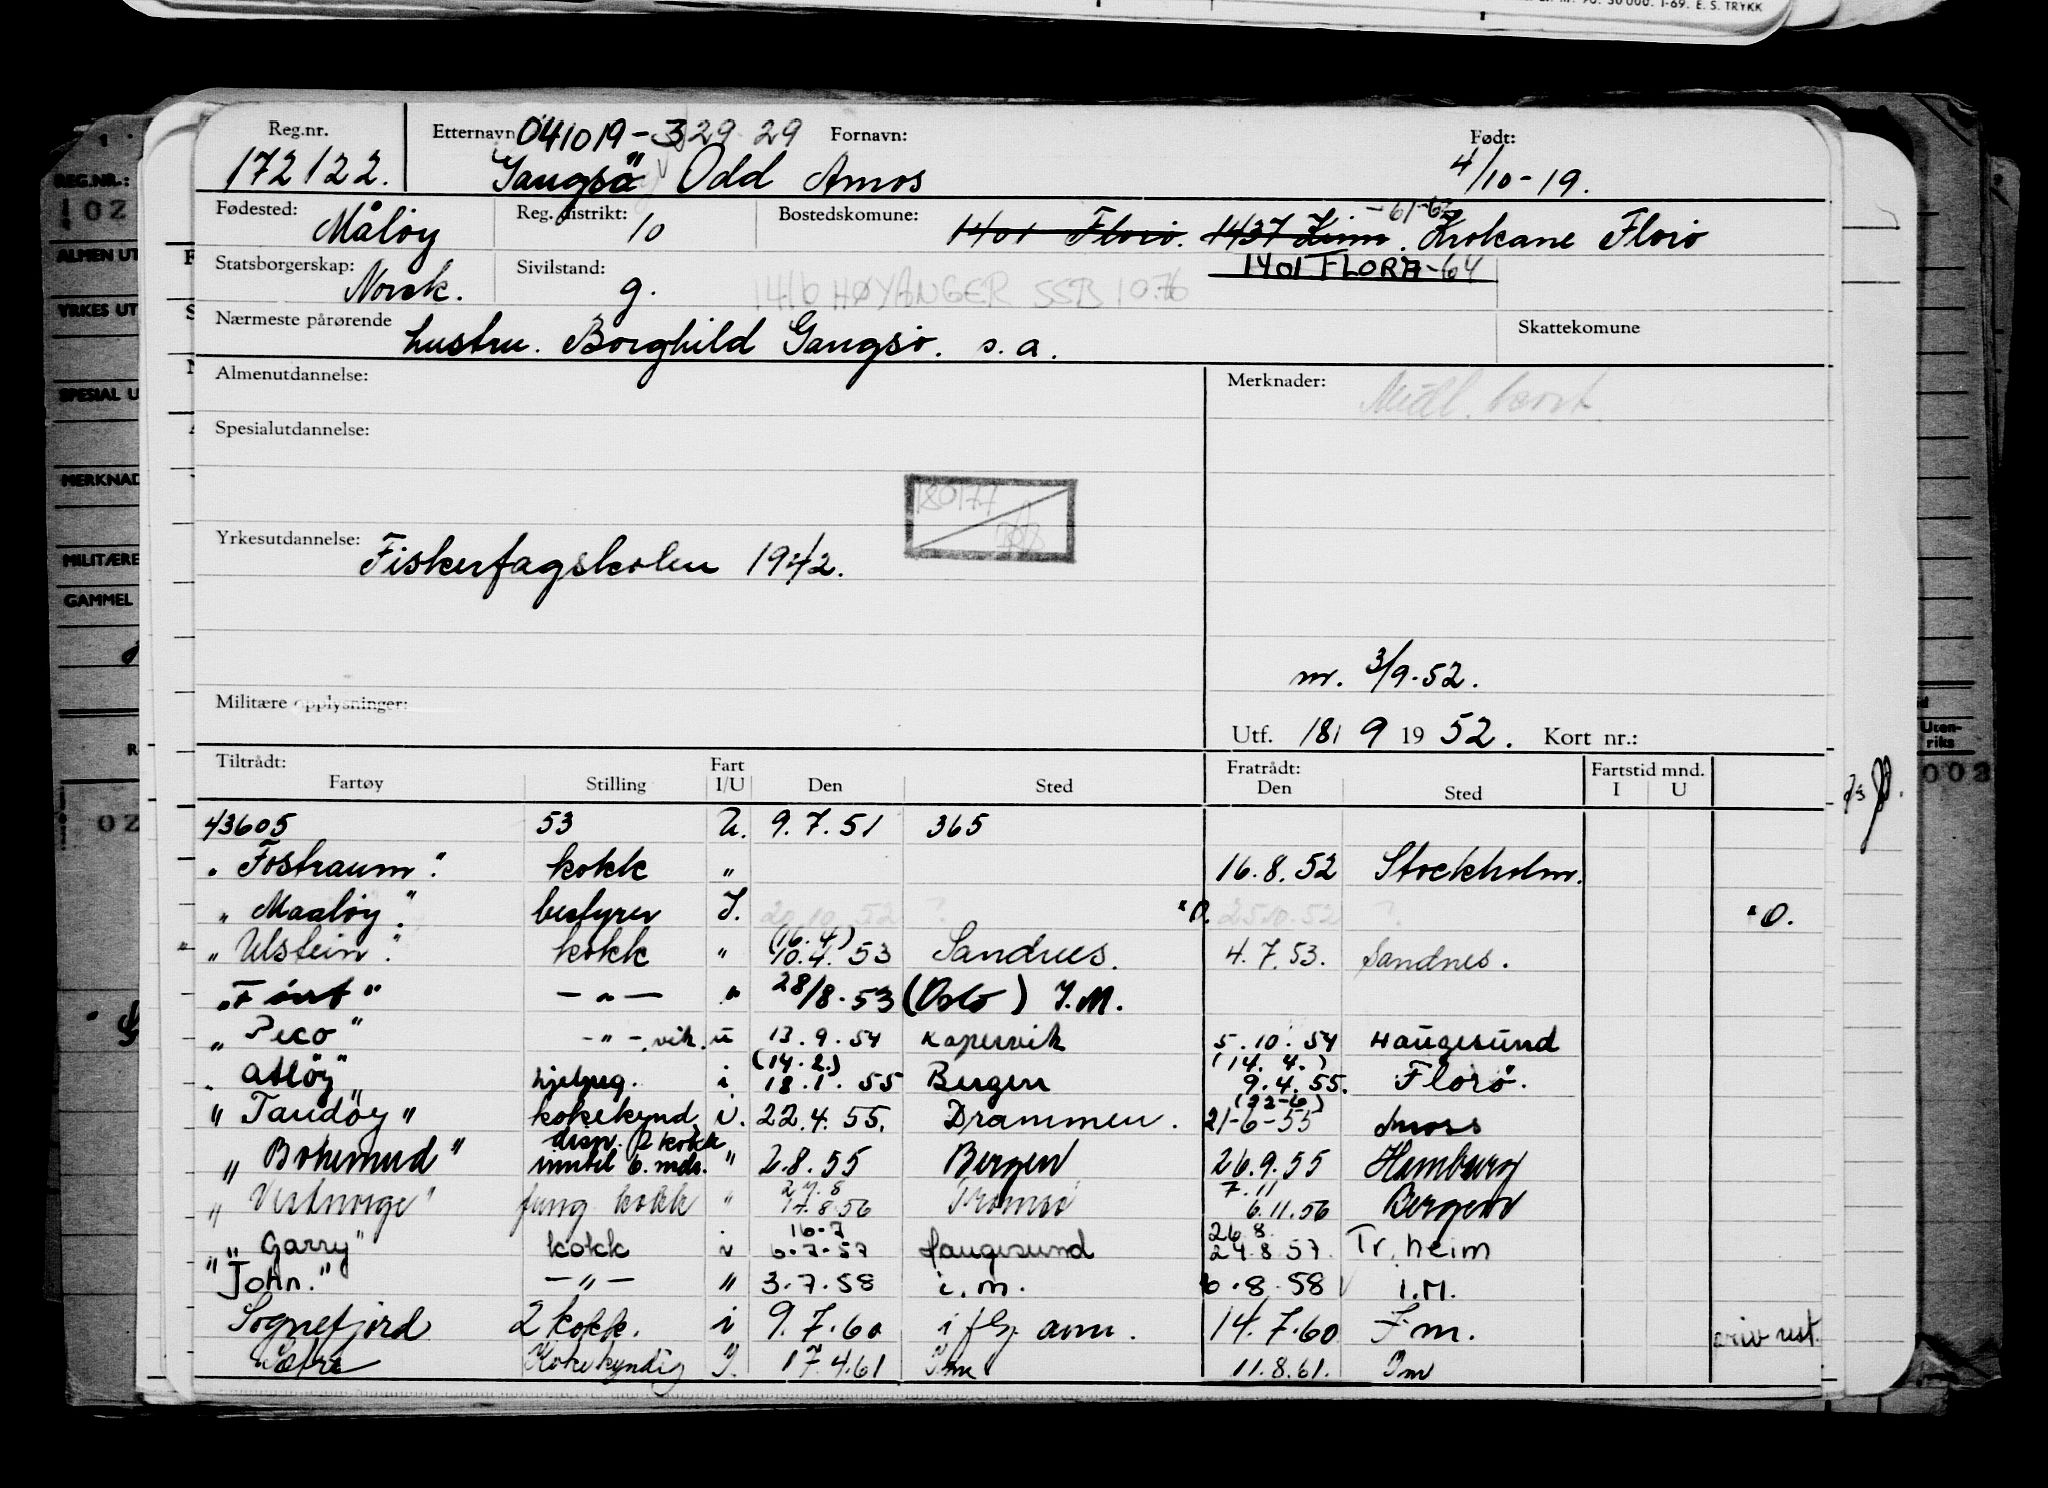 Nr. 90. 30 000. 1-69. E. S. TRYKK
Reg.nr. Etternavn 041019-32929 Fornavn: Født:
172122. Gangsö Odd Amos 4/10-19.
Fødested: Måløy Reg. distrikt: 10 Bostedskomune: 1401 Florø. 1437 Kinn -61-62. Krokane Florø
1401 FLORA-64
Statsborgerskap: Norsk. Sivilstand: g. 1416 HØYANGER SSB 10.76
Nærmeste pårørende hustru. Borghild Gangsø. s.a. Skattekomune
Almenutdannelse: Merknader:
Spesialutdannelse:
180177
Yrkesutdannelse: Fiskerfagskolen 1942.
nr. 3/9-52.
Militære opplysninger:
Utf. 18/ 9 19 52. Kort nr.:
Tiltrådt: Fart Fratrådt: Fartstid mnd.
Fartøy Stilling I/U Den Sted Den Sted I U
43605 53 U. 9.7.51 365
"Fostraum". kokk " 16.8.52 Stockholm.
"Maaløy". bestyrer I. 20.10.52 ? "O. 25.10.52 ? "O.
(16.4)
"Ulstein". kokk " 10.4.53 Sandnes. 4.7.53. Sandnes.
"Fönt" -"- " 28/8-53 (Oslo) I.M.
"Peco" -"-.vik. u 13.9.54 Kopervik 5.10.54 Haugesund
(14.2.) (14.4.)
"Atløy" hjelpeg. i 18.1.55 Bergen 9.4.55. Florö.
(22-6)
"Tandöy" kokekynd. i. 22.4.55. Drammen. 21-6-55 Moss
disp. 2 kokk
"Bohemund" inntil 6. mdr. " 2.8.55 Bergen 26.9.55 Hamburg
27.8 7.11
"Vestnorge" fung kokk " 17.8.56 Tromsø 6.11.56 Bergen
16-7 26.8.
"Garry" kokk i 6-7-57 Haugesund 24.8.57. Tr.heim
"John." -"- " 3.7.58 i.m. 6.8.58 I.M.
Sognefjord 2 kokk. i 9.7.60 i flg. anm. 14.7.60 I m. ariv ust.
Sætre Kokekyndig I. 17.4.61 Im 11.8.61. Im
REG.NR.:
102
ALMEN UT
YRKES UT
SPESIAL U
MERKNAD
MILITÆRE
GAMMEL
02
Uten-
riks
002